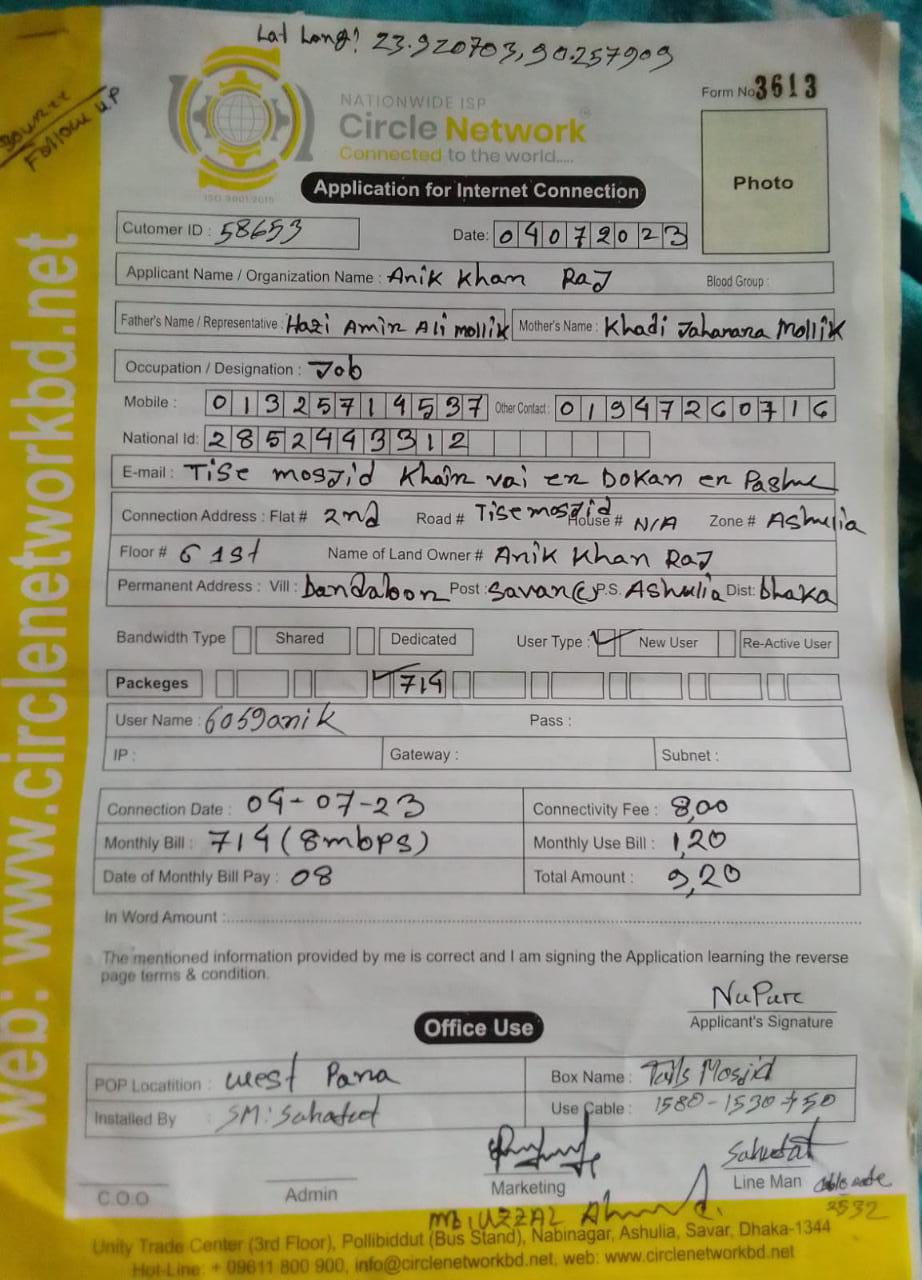 Lat Long! 23.920703,90.257909
Source
Follow UP
Form No 3613
NATIONWIDE ISP
Circle Network
Connected to the world.....
ISO 9001:2015
Photo
Application for Internet Connection
Cutomer ID : 58653
Date: 04072023
Applicant Name / Organization Name : Anik Khan Raj
Blood Group :
Father's Name / Representative : Hazi Amin Ali mollik Mother's Name : Khadi Jaharara Mollik
Occupation / Designation : Job
Mobile : 01325714537 Other Contact : 01947260716
National Id: 2852443312
E-mail : Tise mosjid Khain vai er Dokan er Pashe
Connection Address : Flat # 2nd Road # Tise mosjid House # N/A Zone # Ashulia
Floor # 6 1st Name of Land Owner # Anik Khan Raj
Permanent Address : Vill : Dandabon Post : Savar P.S. Ashulia Dist: Dhaka
Bandwidth Type Shared Dedicated User Type : New User Re-Active User
Packeges 714
User Name : 6059anik Pass :
IP : Gateway : Subnet :
Connection Date : 04-07-23 Connectivity Fee : 8,00
Monthly Bill : 714 (8mbps) Monthly Use Bill : 1,20
Date of Monthly Bill Pay : 08 Total Amount : 9,20
In Word Amount :
The mentioned information provided by me is correct and I am signing the Application learning the reverse
page terms & condition.
NuPure
Applicant's Signature
Office Use
POP Locatition : West Para Box Name : Tails Mosjid
Installed By : SM: Sahadat Use Cable : 1580-1530→50
Sahadat
C.O.O Admin Marketing Line Man cable code
2532
MD: UZZAL Ahmed.
Unity Trade Center (3rd Floor), Pollibiddut (Bus Stand), Nabinagar, Ashulia, Savar, Dhaka-1344
Hot-Line: + 09611 800 900, info@circlenetworkbd.net, web: www.circlenetworkbd.net
web: www.circlenetworkbd.net